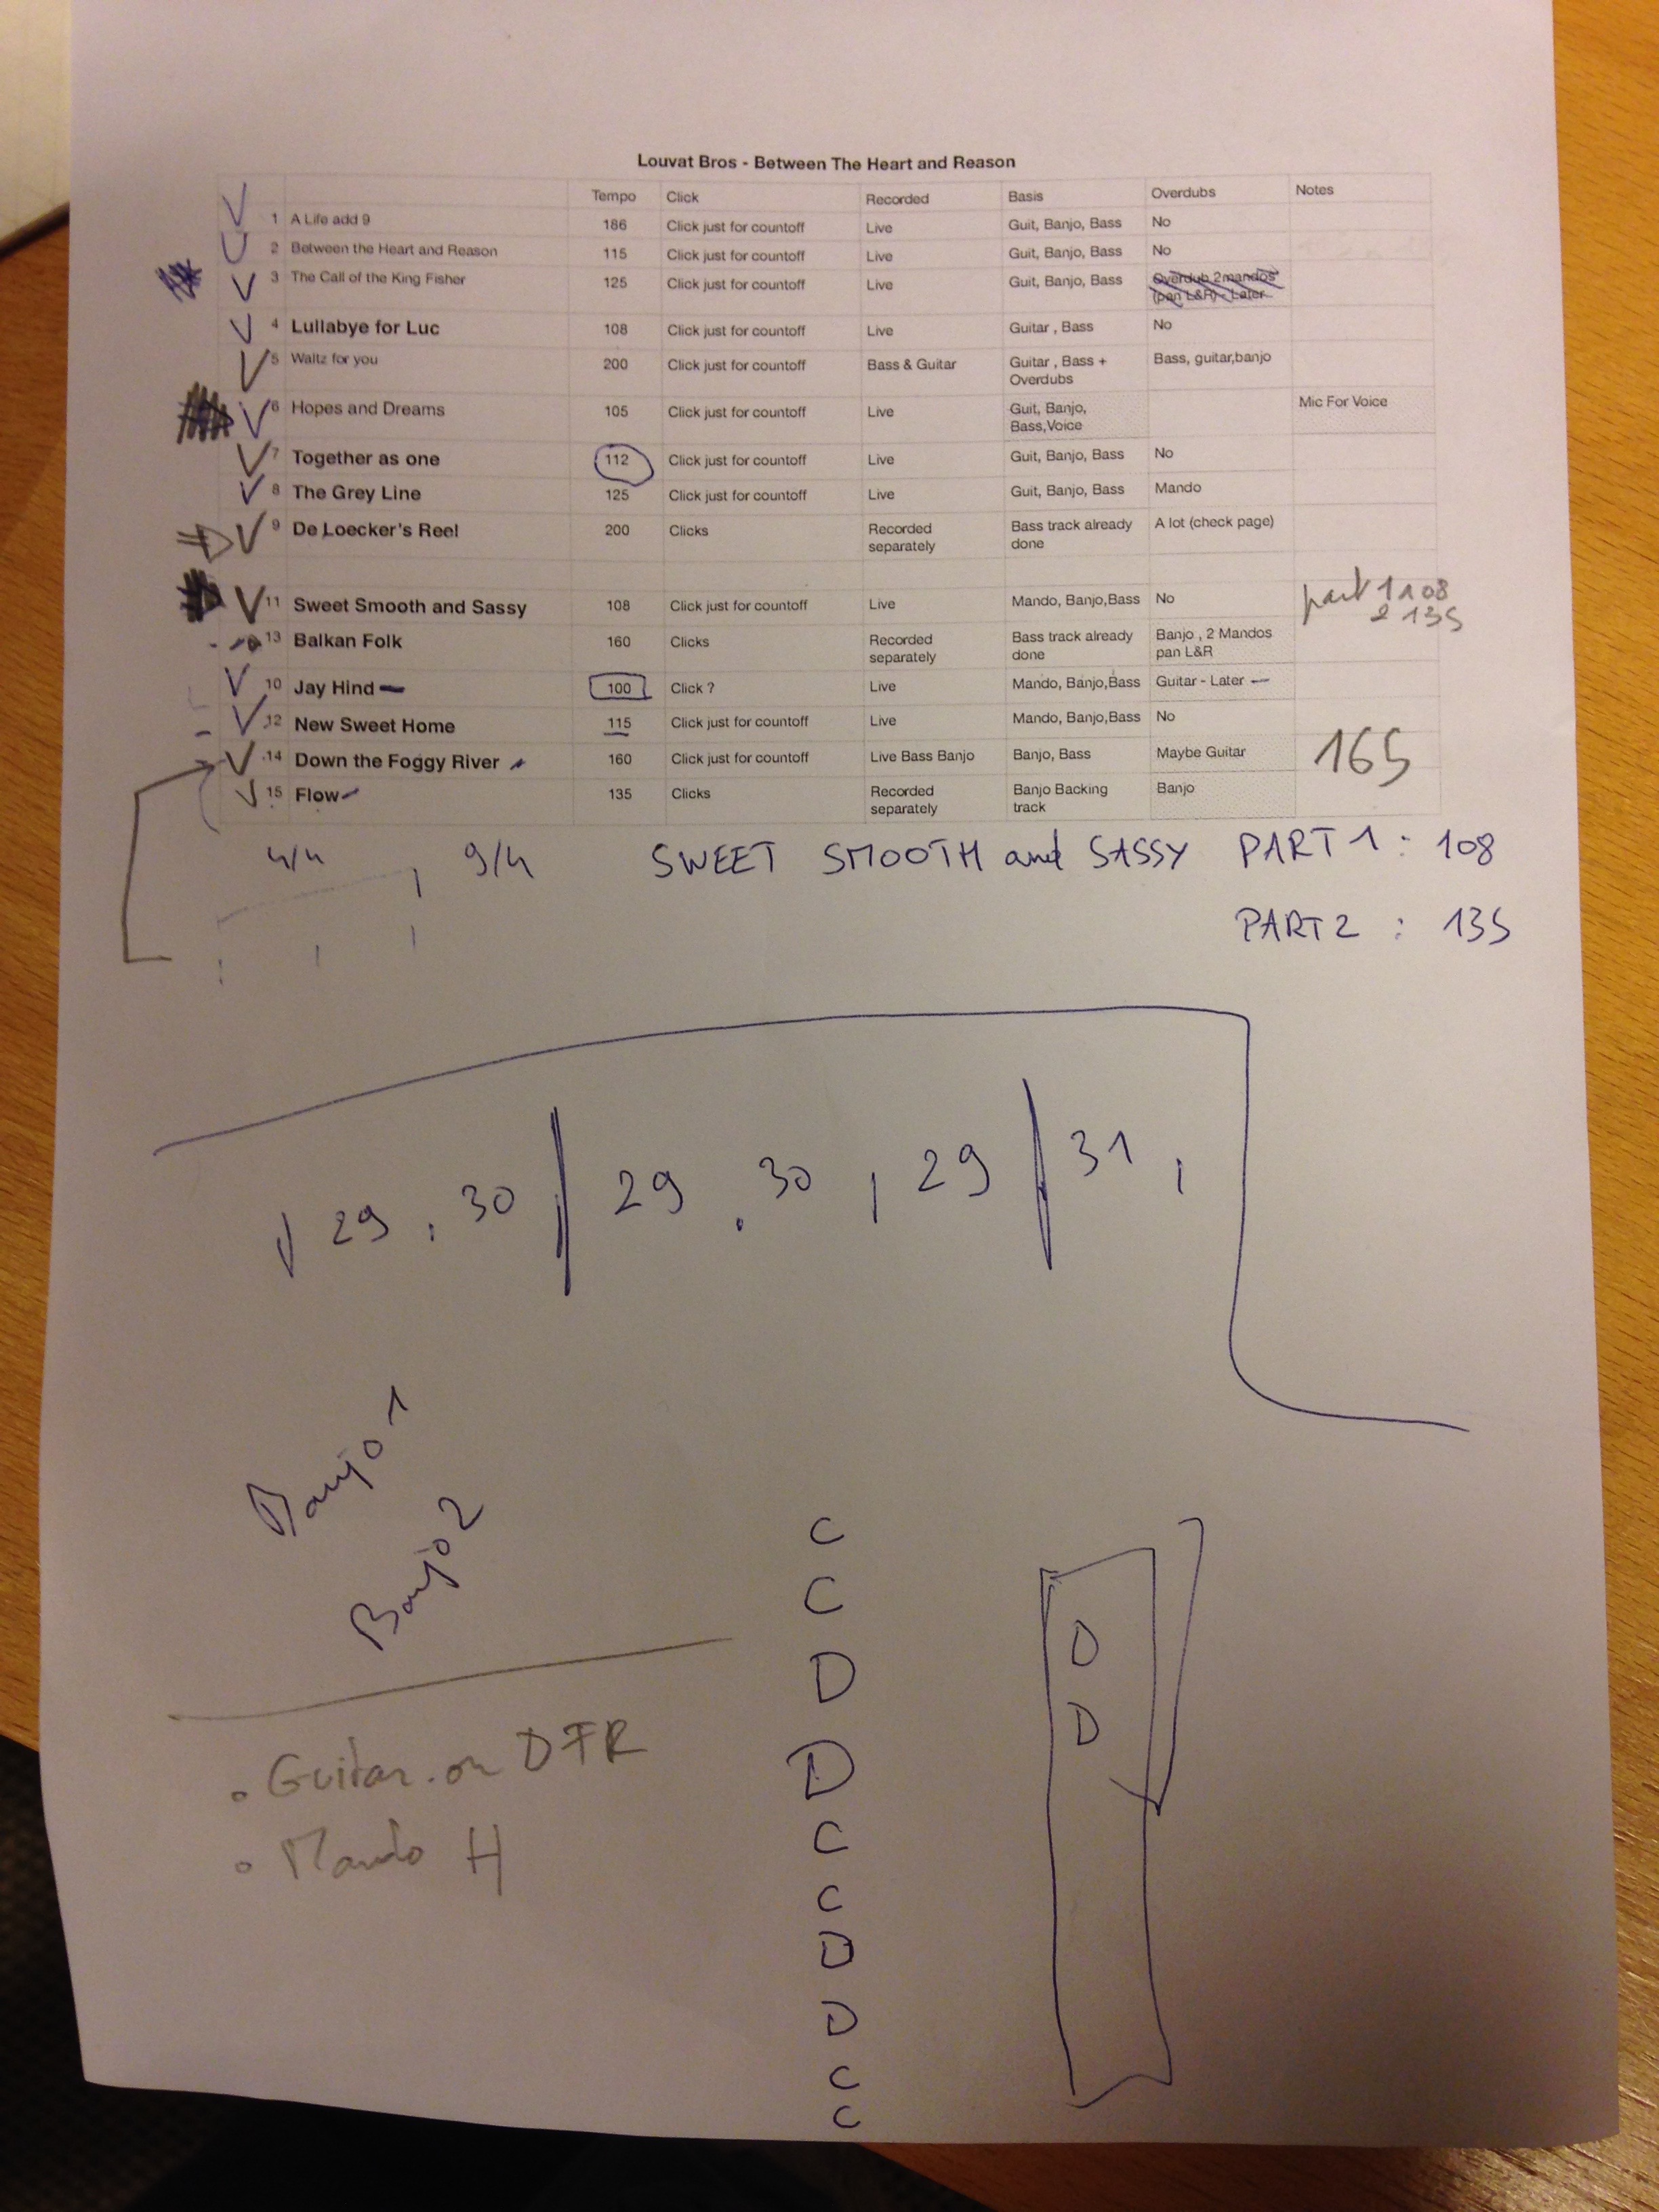 Louvat Bros - Between The Heart and Reason
Tempo Click Recorded Basis Overdubs Notes
1 A Life add 9 186 Click just for countoff Live Guit, Banjo, Bass No
2 Between the Heart and Reason 115 Click just for countoff Live Guit, Banjo, Bass No
3 The Call of the King Fisher 125 Click just for countoff Live Guit, Banjo, Bass Overdub 2mandos
(pan L&R) - Later
4 Lullabye for Luc 108 Click just for countoff Live Guitar , Bass No
5 Waltz for you 200 Click just for countoff Bass & Guitar Guitar , Bass + Bass, guitar,banjo
Overdubs
6 Hopes and Dreams 105 Click just for countoff Live Guit, Banjo, Mic For Voice
Bass,Voice
7 Together as one 112 Click just for countoff Live Guit, Banjo, Bass No
8 The Grey Line 125 Click just for countoff Live Guit, Banjo, Bass Mando
9 De Loecker's Reel 200 Clicks Recorded Bass track already A lot (check page)
separately done
11 Sweet Smooth and Sassy 108 Click just for countoff Live Mando, Banjo,Bass No part 1 108
2 135
13 Balkan Folk 160 Clicks Recorded Bass track already Banjo , 2 Mandos
separately done pan L&R
10 Jay Hind 100 Click ? Live Mando, Banjo,Bass Guitar - Later
12 New Sweet Home 115 Click just for countoff Live Mando, Banjo,Bass No
14 Down the Foggy River 160 Click just for countoff Live Bass Banjo Banjo, Bass Maybe Guitar 165
15 Flow 135 Clicks Recorded Banjo Backing Banjo
separately track
4/4 , 9/4 SWEET SMOOTH and SASSY PART 1 : 108
PART 2 : 135
29 . 30 | 29 . 30 , 29 | 31 ,
Banjo 1
Banjo 2
C
C
D
D
C
C
D
D
C
C
D
D
. Guitar on DFR
. Mando H